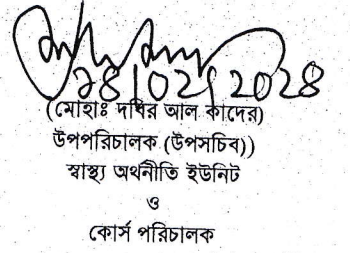 ১৪|০২|২০২৪
(মোহাঃ দধির আল কাদের)
উপপরিচালক (উপসচিব))
স্বাস্থ্য অর্থনীতি ইউনিট
ও
কোর্স পরিচালক